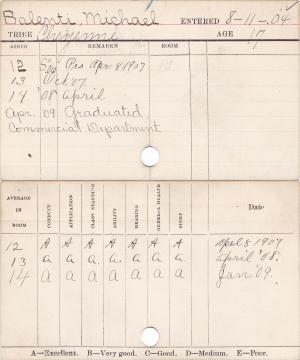 Balenti, Michael ENTERED 8-11-04
TRIBE Cheyenne AGE 17
GRADE REMARKS ROOM
12 Pro Apr 8 1907
13 Oct '07
14 '08 April
Apr. '09 Graduated
Commercial Department
AVERAGE IN ROOM CONDUCT APPLICATION CLASS STANDING ABILITY HEARING GENERAL HEALTH SIGHT Date
12 A A A A A A A April 8 1907
13 a a a a a a a April '08
14 A a a a a a a Jan '09.
A—Excellent. B—Very good. C—Good. D—Medium. E—Poor.